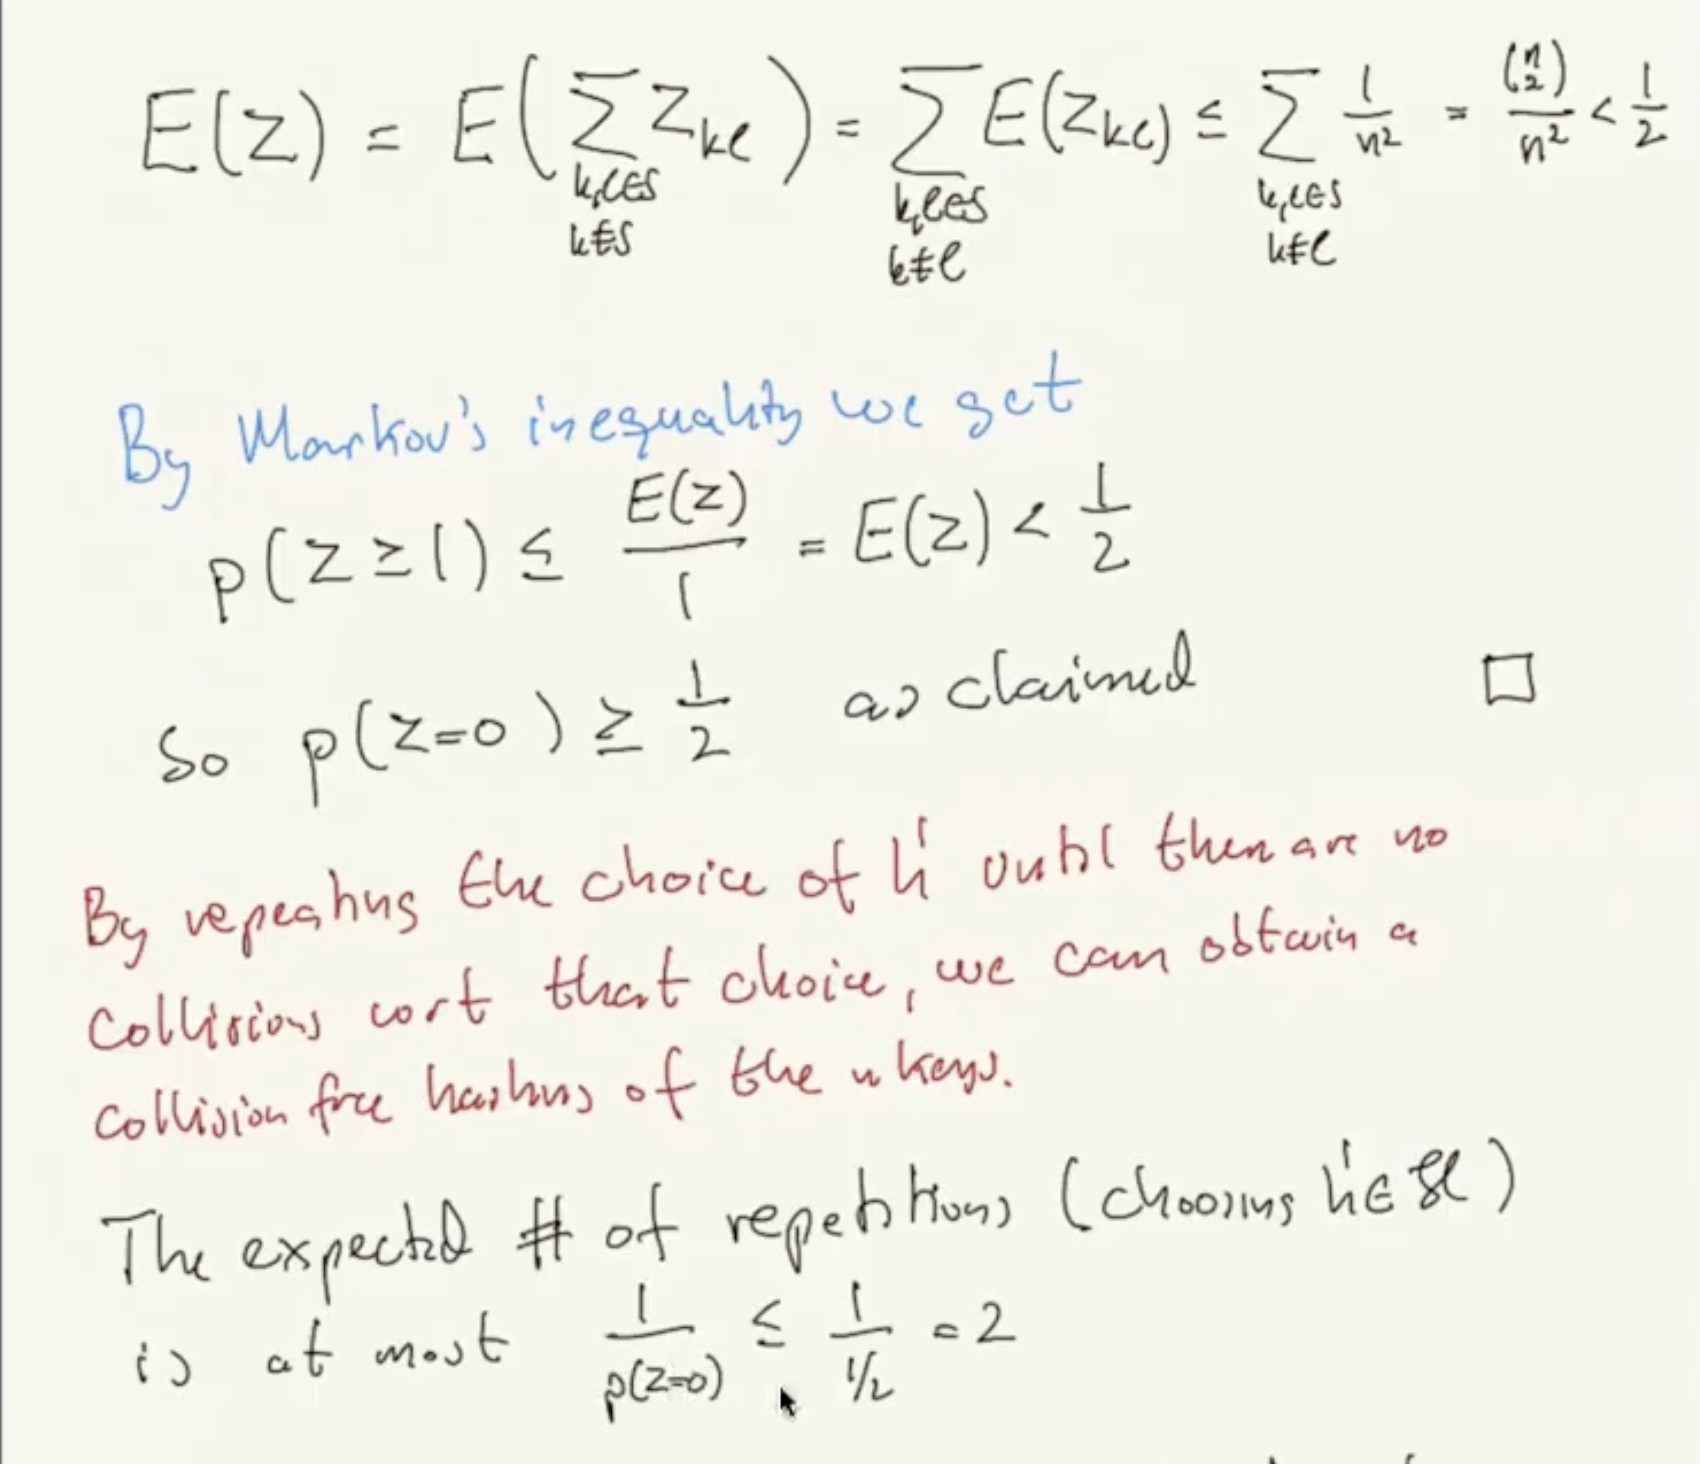 E(Z) = E( ∑ Z_{kl} ) = ∑ E(Z_{kl}) ≤ ∑ 1/n² = (n 2)/n² < 1/2
k,l∈S k,l∈S k,l∈S
k≠S k≠l k≠l
By Markov's inequality we get
p(Z ≥ 1) ≤ E(Z)/1 = E(Z) < 1/2
So p(Z=0) ≥ 1/2 as claimed □
By repeating the choice of h' until there are no
collisions wrt that choice, we can obtain a
collision free hashing of the n keys.
The expected # of repetitions (choosing h'∈ℋ)
is at most 1/p(Z=0) ≤ 1/1/2 = 2